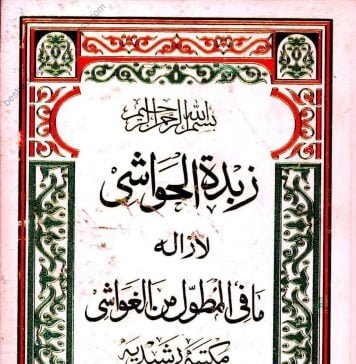 بسم الله الرحمن الرحيم
زبدة الحواشی
لازاله
ما فی المطول من الغواشی
مکتبہ رشیدیہ